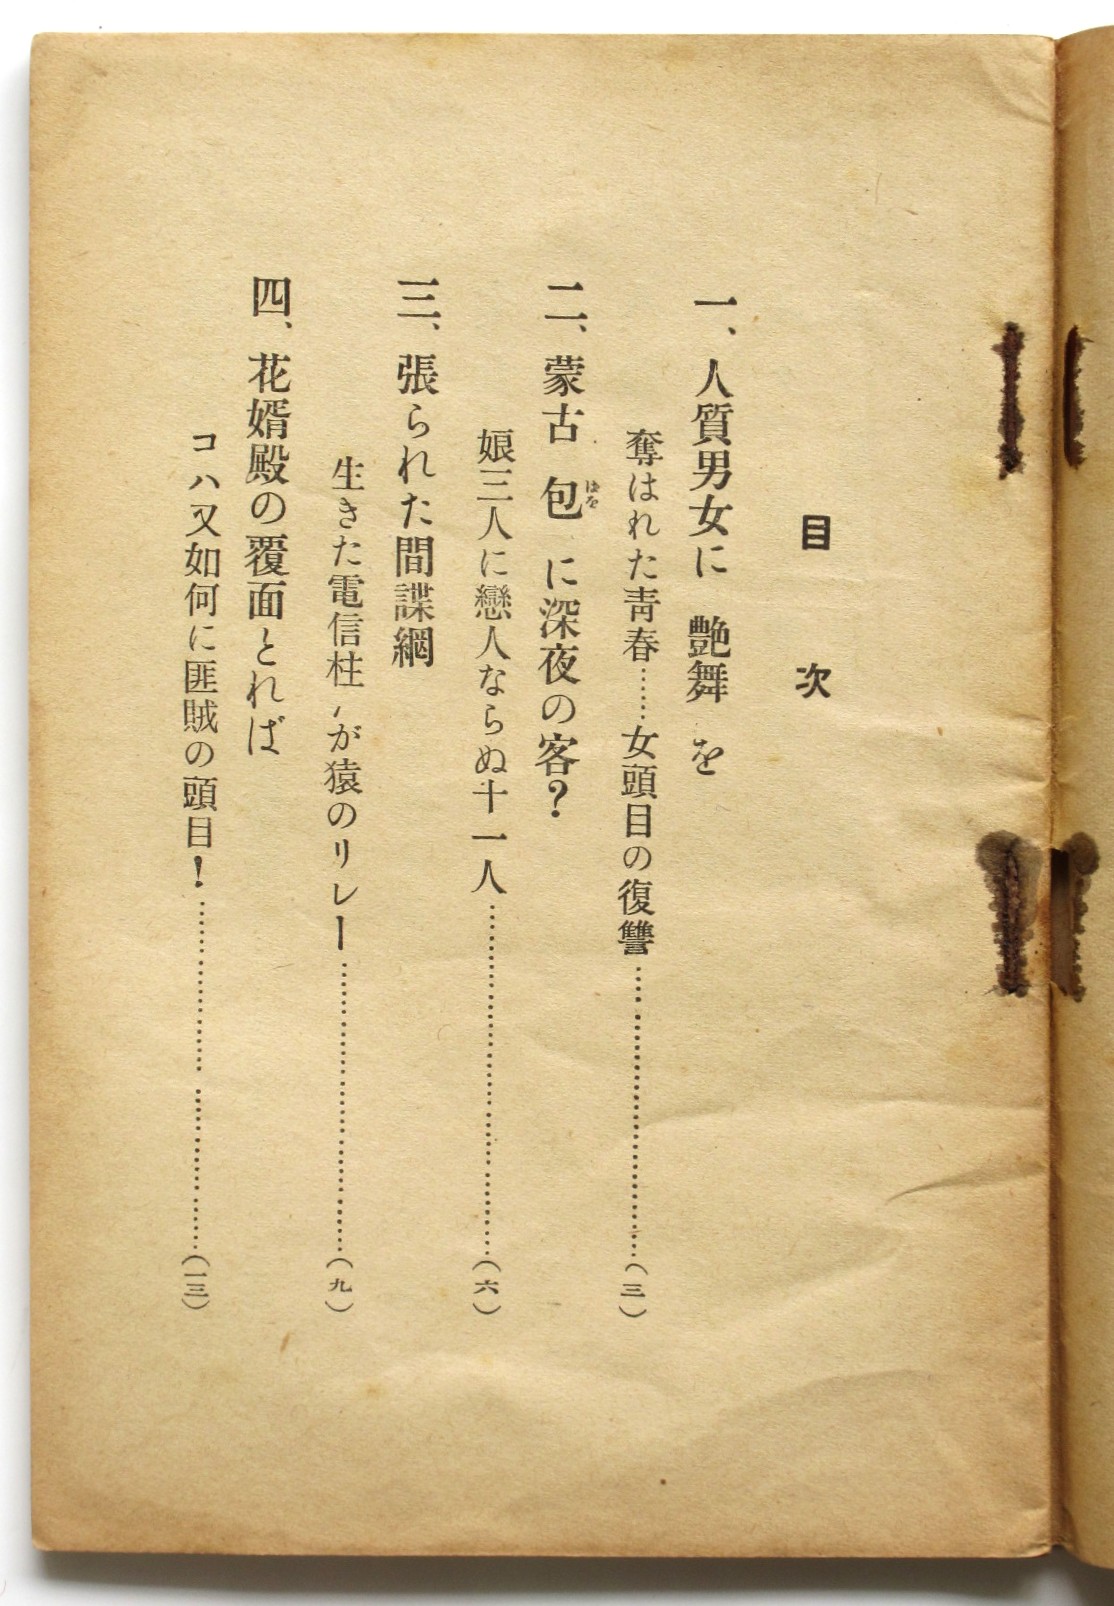 目次
一、人質男女に 艶舞 を
奪はれた靑春……女頭目の復讐…………………………(三)
二、蒙古 包 に深夜の客?
ほを
娘三人に戀人ならぬ十一人…………………………(六)
三、張られた間諜網
生きた電信柱、が猿のリレー…………………………(九)
四、花婿殿の覆面とれば
コハ又如何に匪賊の頭目!…………………………(一三)